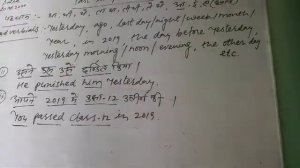 adverbials:- Yesterday, ago, last day/night/week/month/
Year, in 2019, the day before yesterday,
yesterday morning/noon/evening, the other day
etc.
उसने उसे दण्डित किया।
He punished him yesterday.
आपने 2019 में कक्षा-12 उत्तीर्ण की।
You passed class-12 in 2019.